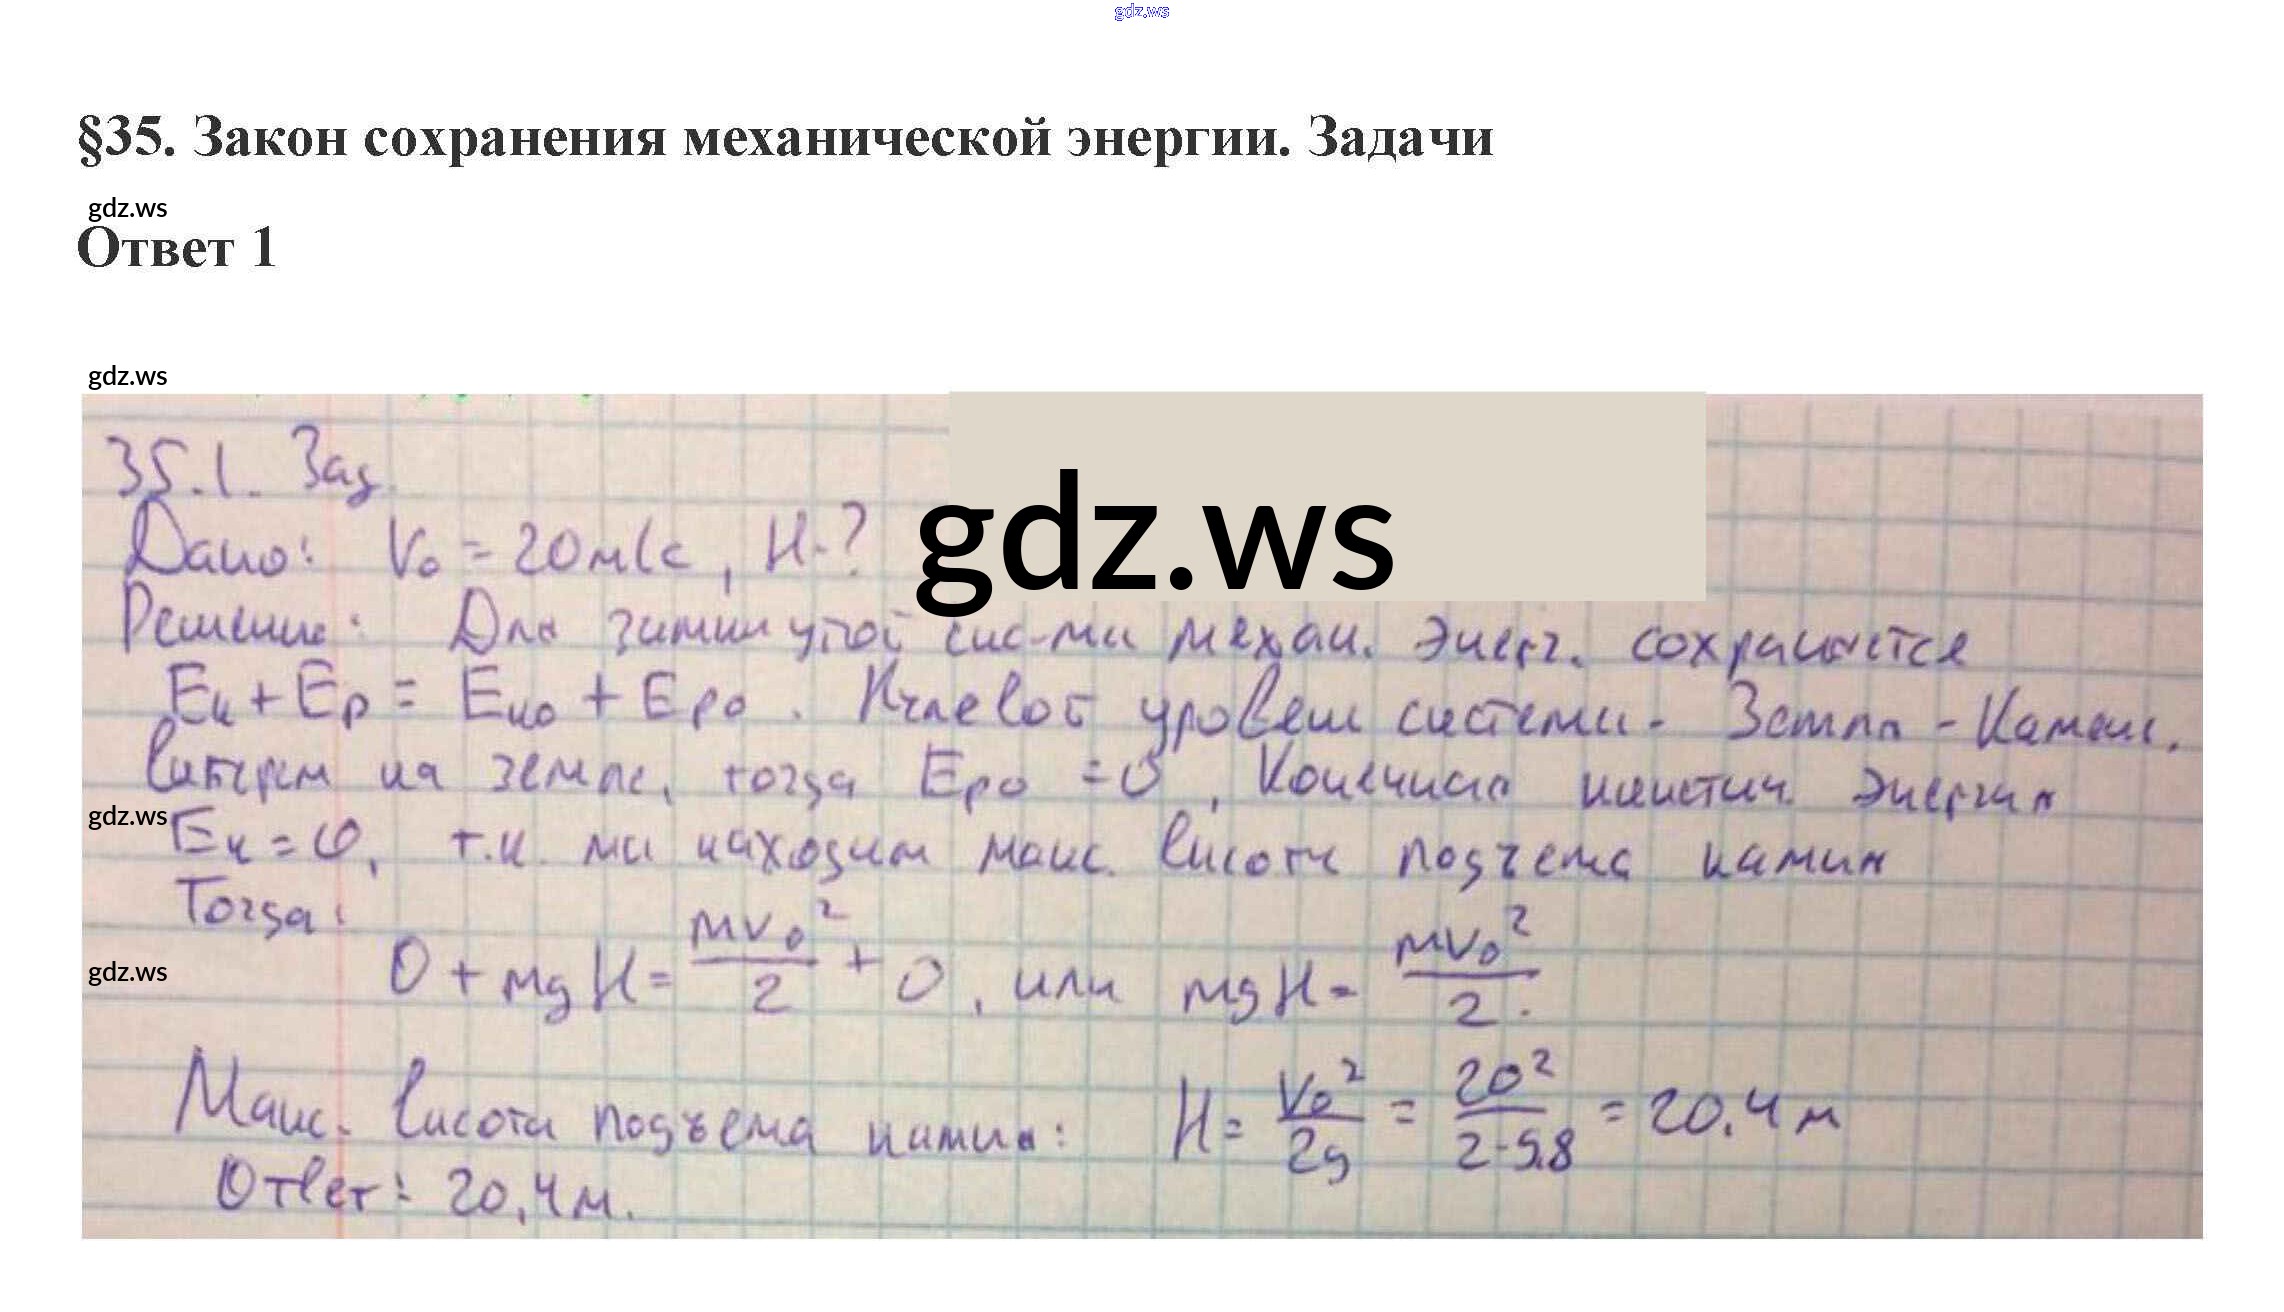 gdz.ws
§35. Закон сохранения механической энергии. Задачи
gdz.ws
Ответ 1
gdz.ws
35.1. Зад.
gdz.ws
Дано: V₀ = 20 м/с, H-?
Решение: Для замкнутой сис-мы механ. энерг. сохраняется
Eк + Ep = Eк₀ + Ep₀. Нулевой уровень системы - Земля - Камень.
выберем на земле, тогда Ep₀ = 0, Конечная кинетич. энергия
gdz.ws
Eк = 0, т.к. мы находим макс. высоту подъема камня
Тогда:
gdz.ws
0 + mgH = mv₀²/2 + 0, или mgH = mv₀²/2.
Макс. высота подъема камня: H = v₀²/2g = 20²/2·9,8 = 20,4 м
Ответ: 20,4 м.